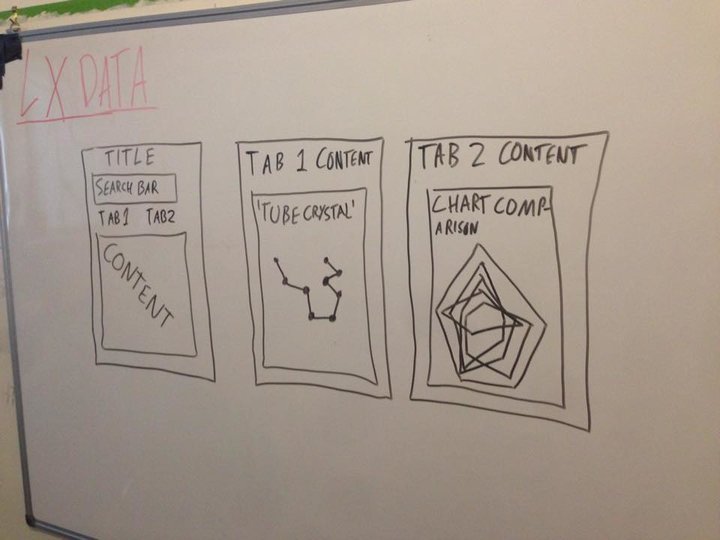 LX DATA
TITLE
SEARCH BAR
TAB 1 TAB2
CONTENT
TAB 1 CONTENT
'TUBE CRYSTAL'
TAB 2 CONTENT
CHART COMP-
ARISON